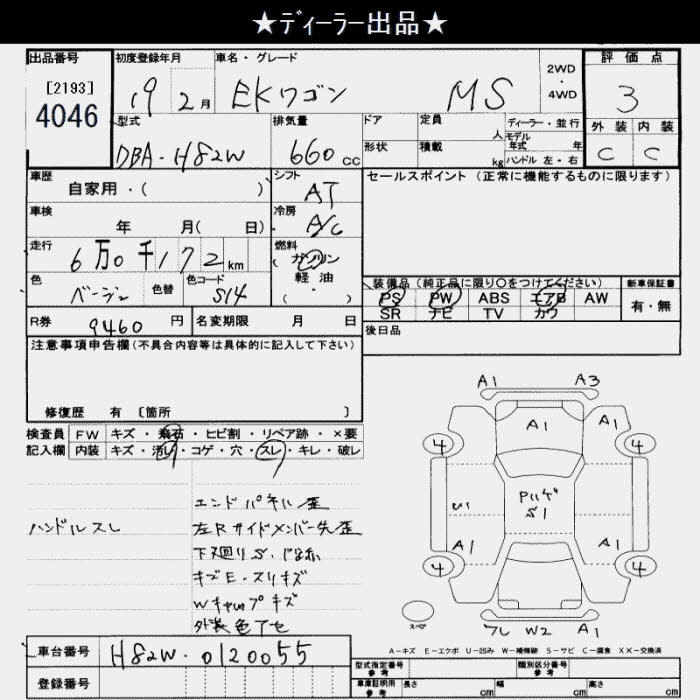 ★ディーラー出品★
出品番号 初度登録年月 車名・グレード 評価点
[2193]
4046
19 2月 EKワゴン MS 2WD・4WD 3
型式 排気量 ドア 定員 人 ディーラー・並行 外装 内装
モデル年式 年
DBA-H82W 660cc 形状 積載 kg ハンドル 左・右 C C
車歴 シフト セールスポイント (正常に機能するものに限ります)
自家用・( ) AT
車検 冷房
年 月( 日) A/C
走行 燃料
6万0千172km ガソリン
色 色替 色コード 軽油
( ・ )
ベージュ S14
装備品 (純正品に限り○をつけてください) 新車保証書
PS PW ABS エアB AW 有・無
SR ナビ TV カワ
R券 9460円 名変期限 月 日 後日品
注意事項申告欄(不具合内容等は具体的に記入して下さい)
修復歴 有 [箇所 ]
検査員 FW キズ・飛石・ヒビ割・リペア跡・×要
記入欄 内装 キズ・汚れ・コゲ・穴・スレ・キレ・破レ
エンドパネル歪
ハンドルスレ 左Rサイドメンバー先歪
下廻りS
キズE・スリキズ
Wキャップキズ
外装色アセ
A1 A3
A1 A1
4 4
S1
U1
A1 A1
4 4
スペア
W2
A-キズ E-エクボ U-凹み W-補修跡 S-サビ C-腐食 XX-交換済
車台番号 H82W-0120055
登録番号
型式指定番号 参考 類別区分番号 参考
車庫証明用 参考 長さ cm 幅 cm 高さ cm